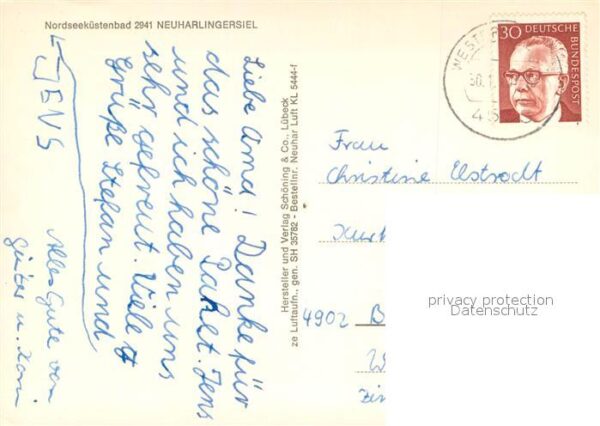 Nordseeküstenbad 2941 NEUHARLINGERSIEL
Liebe Ama! Danke für
das schöne Paket. Jens
und ich haben uns
sehr gefreut. Viele
Grüße Stefan und
JENS
Alles Gute von
Günter u.
Hersteller und Verlag Schöning & Co., Lübeck
ze Luftaufn., gen. SH 35/62 - Bestellnr. Neuhar Luft KL 5444-f
30 DEUTSCHE
BUNDESPOST
WEST
Frau
Christine Elstrodt
4902 B
privacy protection
Datenschutz